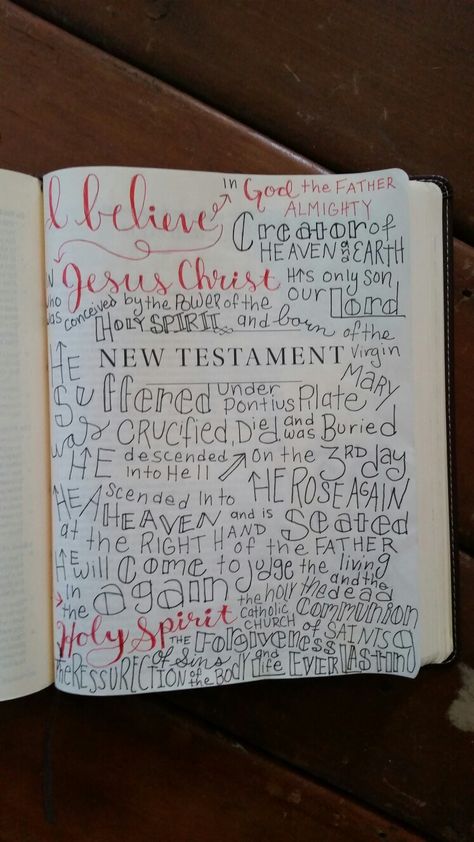 I believe in God the FATHER
ALMIGHTY
Creator of
HEAVEN and EARTH
in Jesus Christ His only son
our Lord
who was conceived by the Power of the
HOLY SPIRIT and born of the
Virgin
MARY
NEW TESTAMENT
HE
Suffered under
Pontius Pilate
was CRUCIFIED, Died and was Buried
HE descended
into Hell
On the 3RD day
HE ROSE AGAIN
HE Ascended into
HEAVEN and is Seated
at the RIGHT HAND of the FATHER
HE will Come to judge the living
and the dead
again
in the
Holy Spirit the holy
catholic
CHURCH the Communion
of SAINTS
THE Forgiveness
of Sins
the RESSURECTION of the BODY and Life EVERLASTING